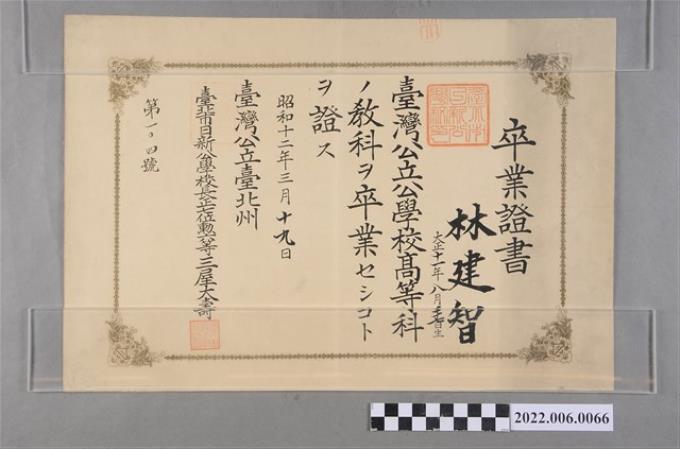 卒業證書
林建智
大正十一年八月 生
臺灣公立公學校高等科
ノ教科ヲ卒業セシコト
ヲ證ス
昭和十二年三月十九日
臺灣公立臺北州
臺北市日新公學校長正七位勲六等三屋大壽
第一〇四號
2022.006.0066